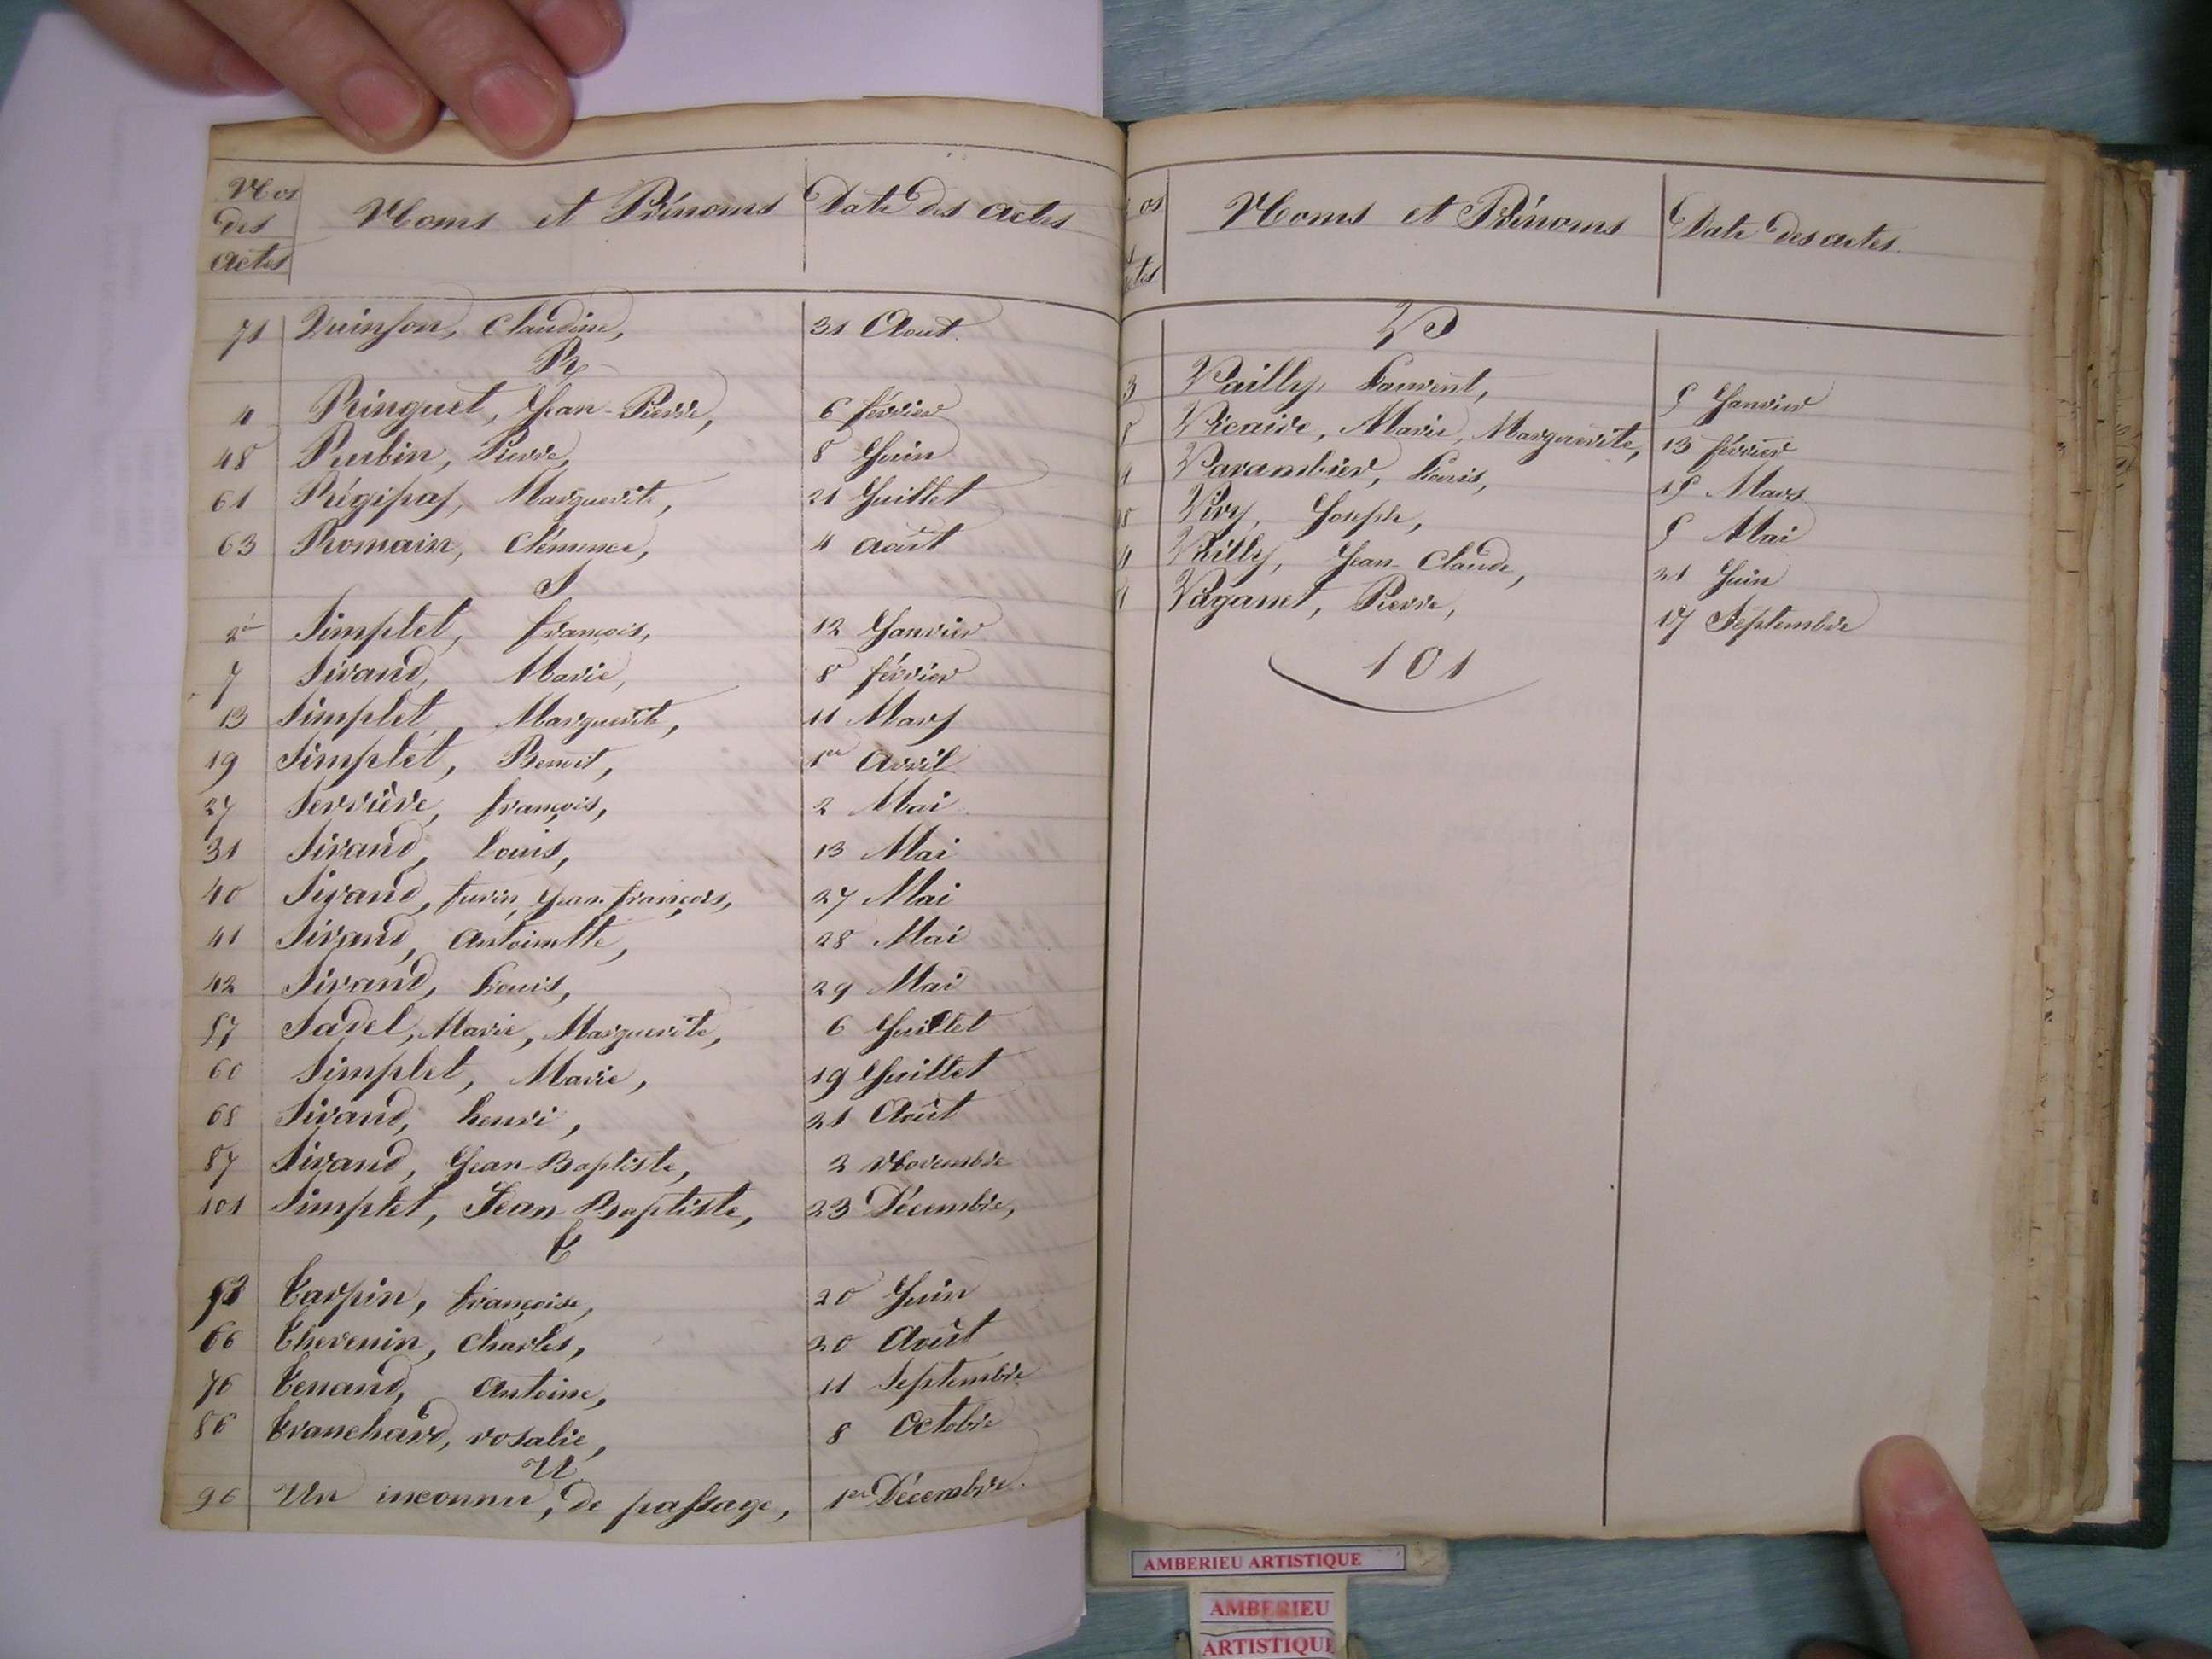 Nos
des
actes
Noms et Prénoms
Date des actes
71 Quinson, Claudine, 31 Aout.
R
4 Ringuet, Jean-Pierre, 6 février
48 Rubin, Pierre, 8 Juin
61 Régipas, Marguerite, 21 Juillet
63 Romain, Clémence, 4 août
S
2 Simplet, françois, 12 Janvier
7 Sirand, Marie, 8 février
13 Simplet, Marguerite, 11 Mars
19 Simplet, Benoit, 1er Avril
27 Serrière, françois, 2 Mai
31 Sirand, Louis, 13 Mai
40 Sirand, Jean françois, 27 Mai
41 Sirand, Antoinette, 28 Mai
42 Sirand, Louis, 29 Mai
57 Sadel, Marie, Marguerite, 6 Juillet
60 Simplet, Marie, 19 Juillet
68 Sirand, henri, 21 Août
87 Sirand, Jean-Baptiste, 2 Novembre
101 Simplet, Jean Baptiste, 23 Décembre,
T
53 Tarpin, françoise, 20 Juin
66 Thevenin, Charles, 20 Août
76 Tenand, Antoine, 11 Septembre
86 Tranchard, rosalie, 8 Octobre
U
96 Un inconnu, de passage, 1er Décembre.
os
ctes
Noms et Prénoms
Date des actes.
V
3 Vailly, Laurent, 5 Janvier
8 Vicaire, Marie, Marguerite, 13 février
4 Varambier, Louis, 15 Mars
Viry, Joseph, 5 Mai
4 Vailly, Jean-Claude, 21 Juin
Vaganet, Pierre, 17 Septembre
101
AMBERIEU ARTISTIQUE
AMBERIEU
ARTISTIQUE